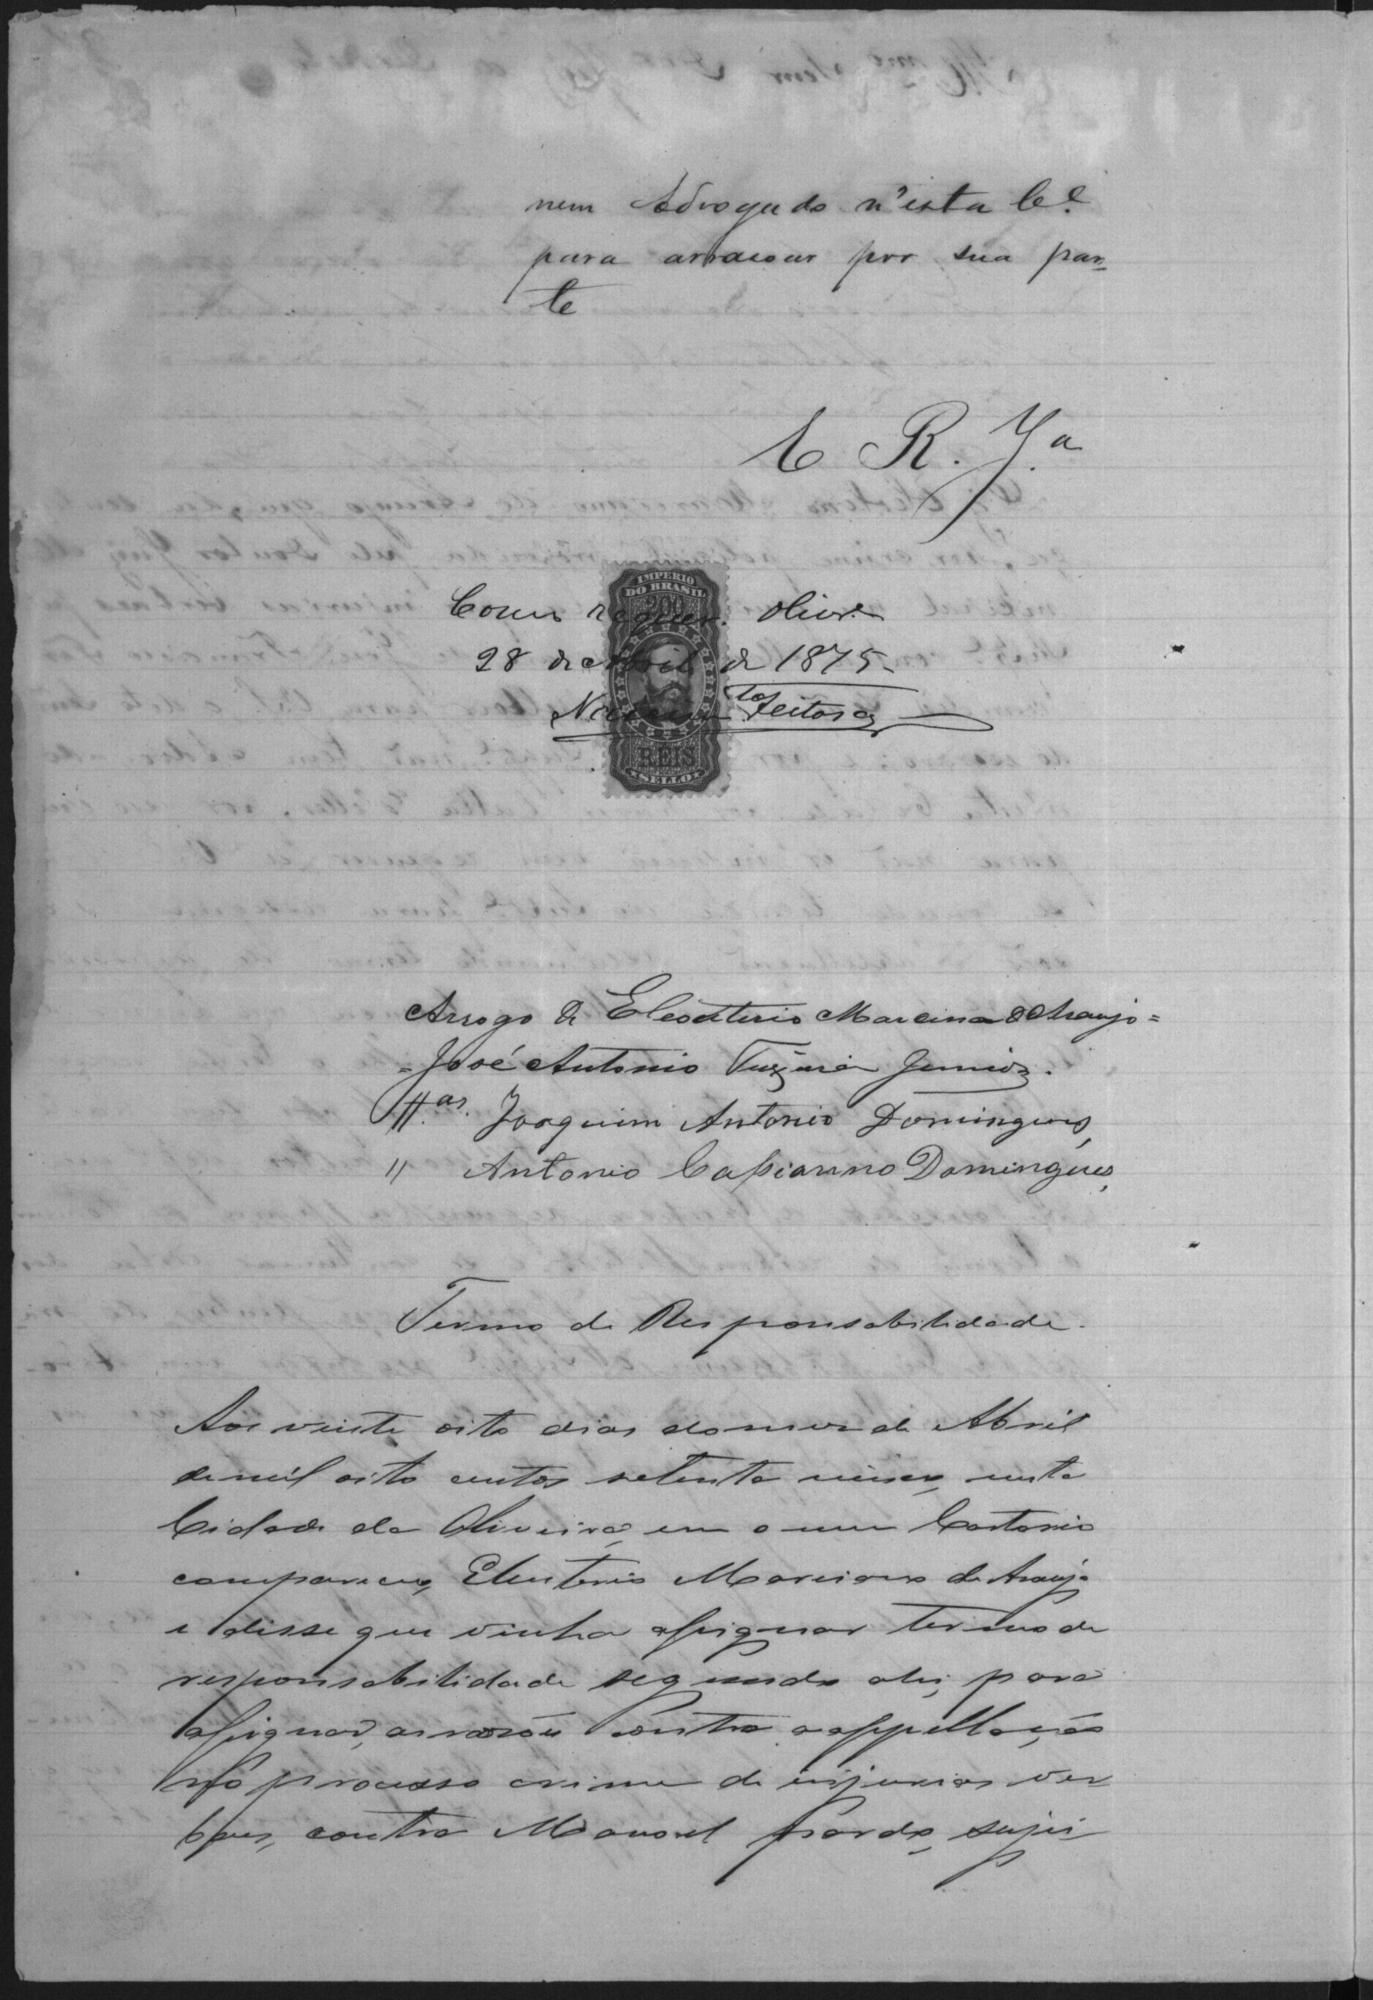 nem Advogado n'esta Ce.
para arrasoar por sua par
te
E R. J.a
IMPERIO
DO BRASIL
200
REIS
SELLO
Como requer. Olivr.a
28 de Abril de 1875.
Feitosa
Arrogo de Eleoterio Marciano de Araujo =
= José Antonio Junior.
tt.as Joaquim Antonio Domingues,
" Antonio Cassianno Domingues,
Termo de Responsabilidade.
Aos vinte oito dias do mes de Abril
de mil oito centos setenta cinco, nesta
Cidade da Oliveira, em o meu Cartorio
compareceo, Eleuterio Marciano de Araujo
e disse que vinha assignar termo de
responsabilidade segundo a lei, para
assignar, as rasões contra a appellação
no processo crime de injurias ver
baes, contra Manoel pardo, sujei